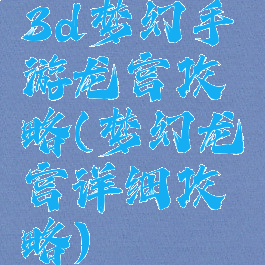 3d梦幻手
游龙宫攻
略(梦幻龙
宫详细攻
略)